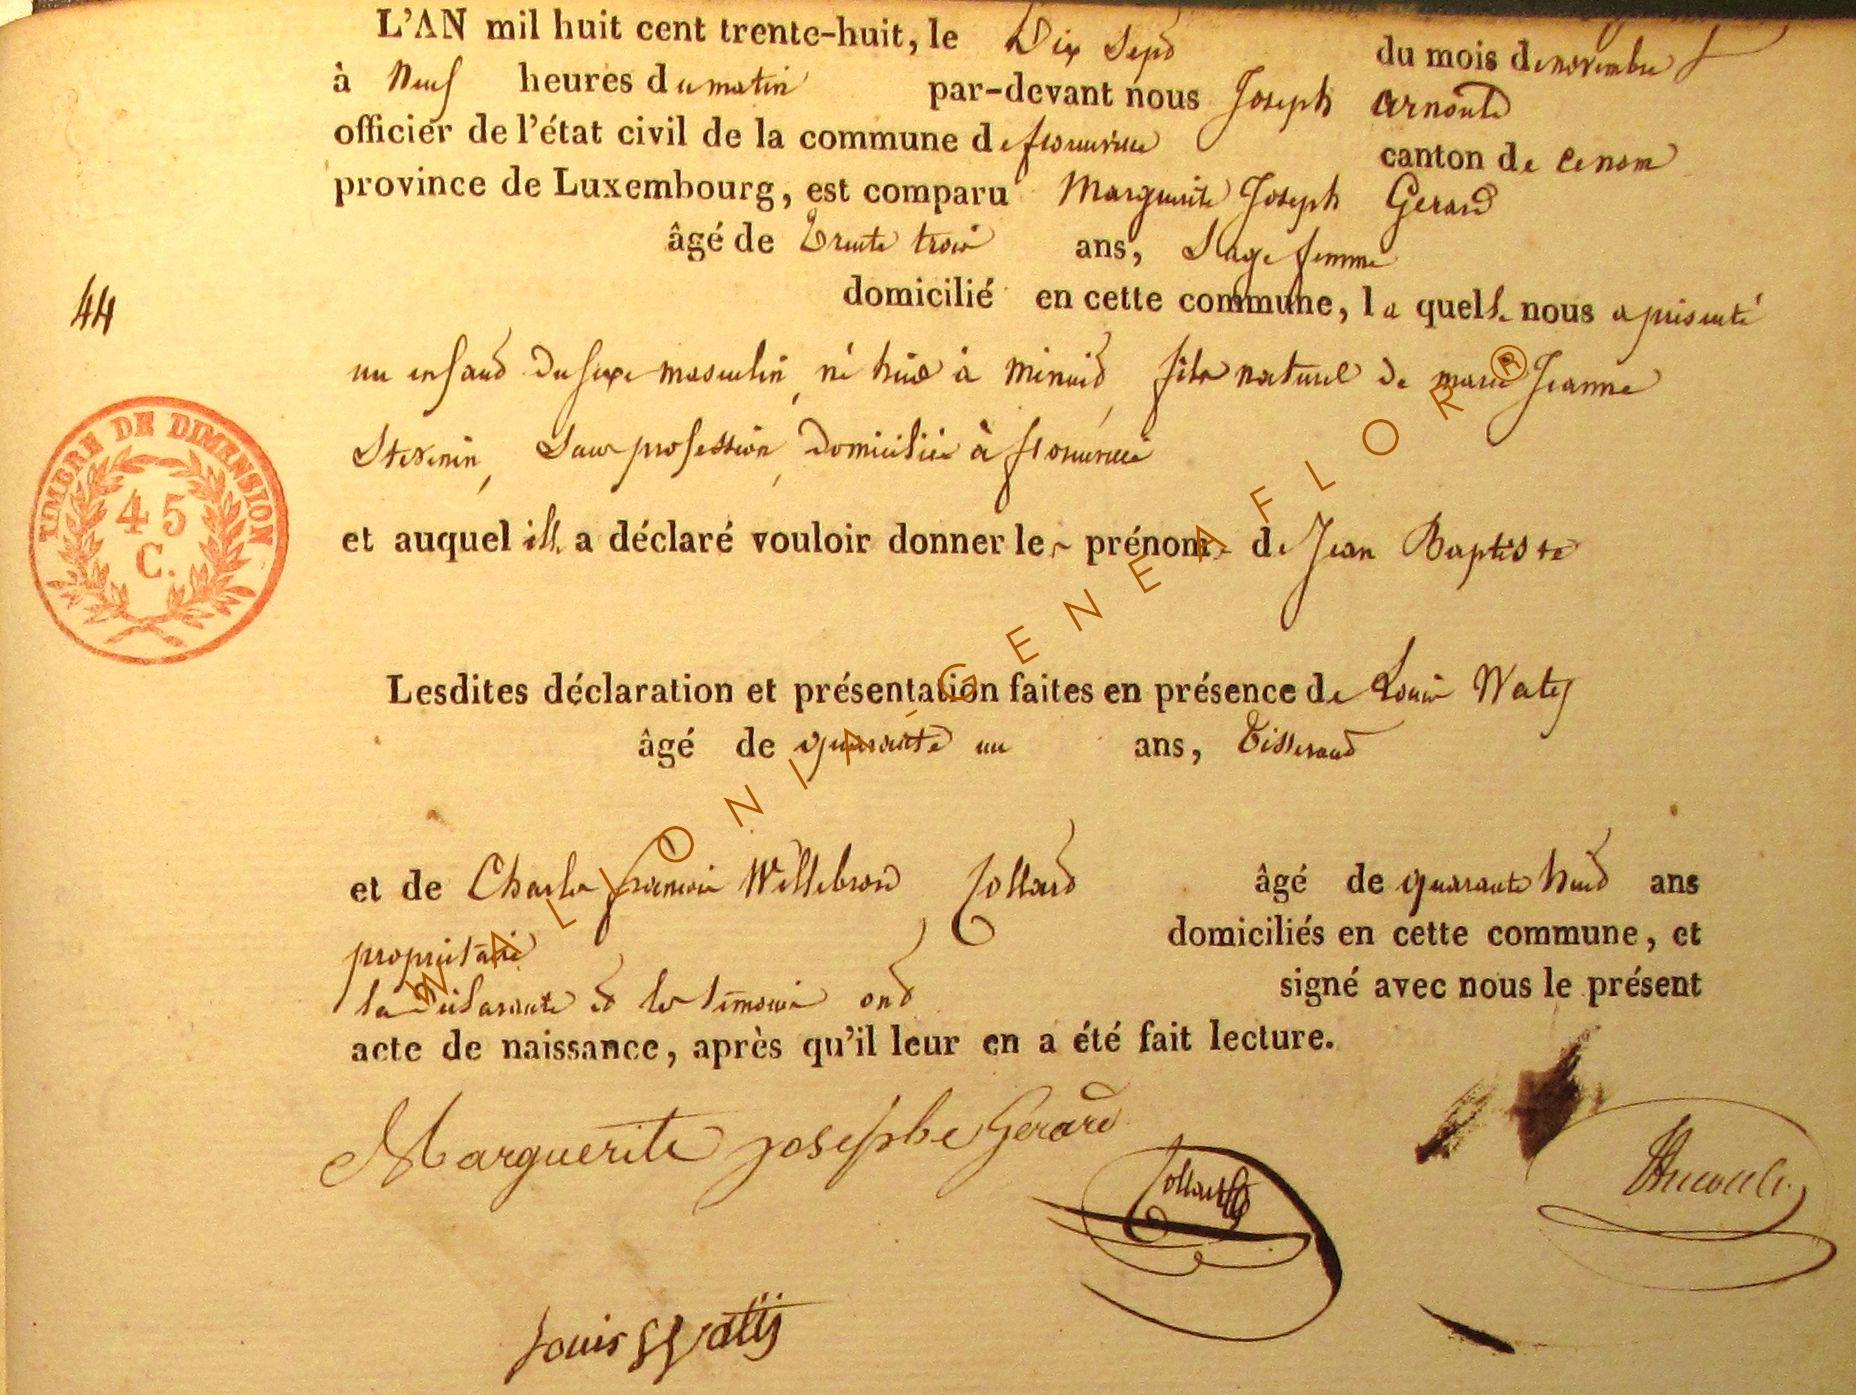 L'AN mil huit cent trente-huit, le Dix Sept du mois de novembre
à Neuf heures du matin par-devant nous Joseph Arnould
officier de l'état civil de la commune de florenville canton de
province de Luxembourg, est comparu Marguerite Joseph Gerard
âgé de Trente trois ans, Sage femme
domicilié en cette commune, la quelle nous a présenté
44
un enfant du sexe masculin, né hier à minuit, fils naturel de marie Jeanne
Stevenin, Sans profession, domiciliée à florenville
et auquel elle a déclaré vouloir donner les prénoms de Jean Baptiste
TIMBRE DE DIMENSION
45
C.
Lesdites déclaration et présentation faites en présence de Louis Watij
âgé de quarante un ans, Tisserand
et de Charles françois Willebrord Collard âgé de quarante huit ans
propriétaire domiciliés en cette commune, et
la déclarante et les témoins ont signé avec nous le présent
acte de naissance, après qu'il leur en a été fait lecture.
Marguerite josephe Gerard
Collard
Louis Watij
WALLONIA-GENEAFLOR®